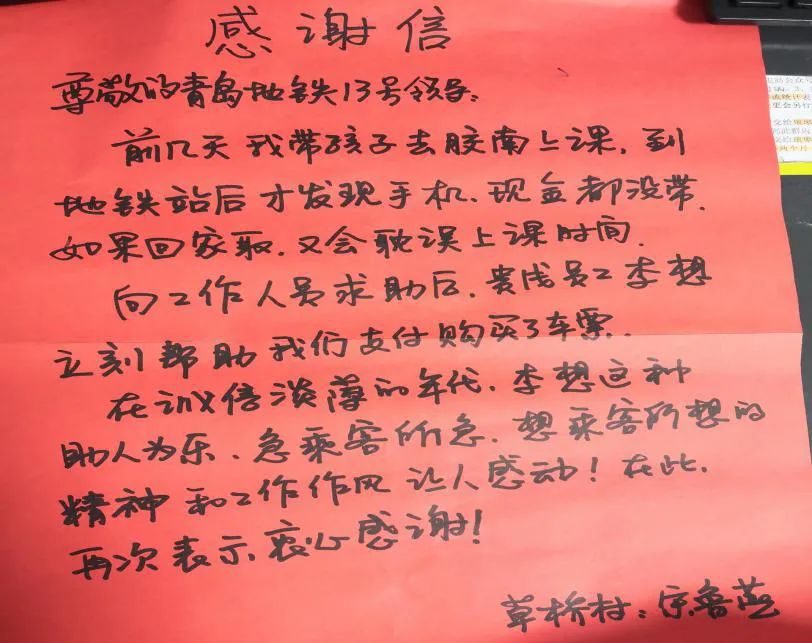 感谢信
尊敬的青岛地铁13号领导:
前几天我带孩子去胶南上课,到
地铁站后才发现手机、现金都没带.
如果回家取.又会耽误上课时间.
向工作人员求助后.贵线员工李想
立刻帮助我们支付购买了车票.
在诚信淡薄的年代.李想这种
助人为乐、急乘客所急.想乘客所想的
精神和工作作风让人感动!在此.
再次表示衷心感谢!
草桥村:宋鲁燕